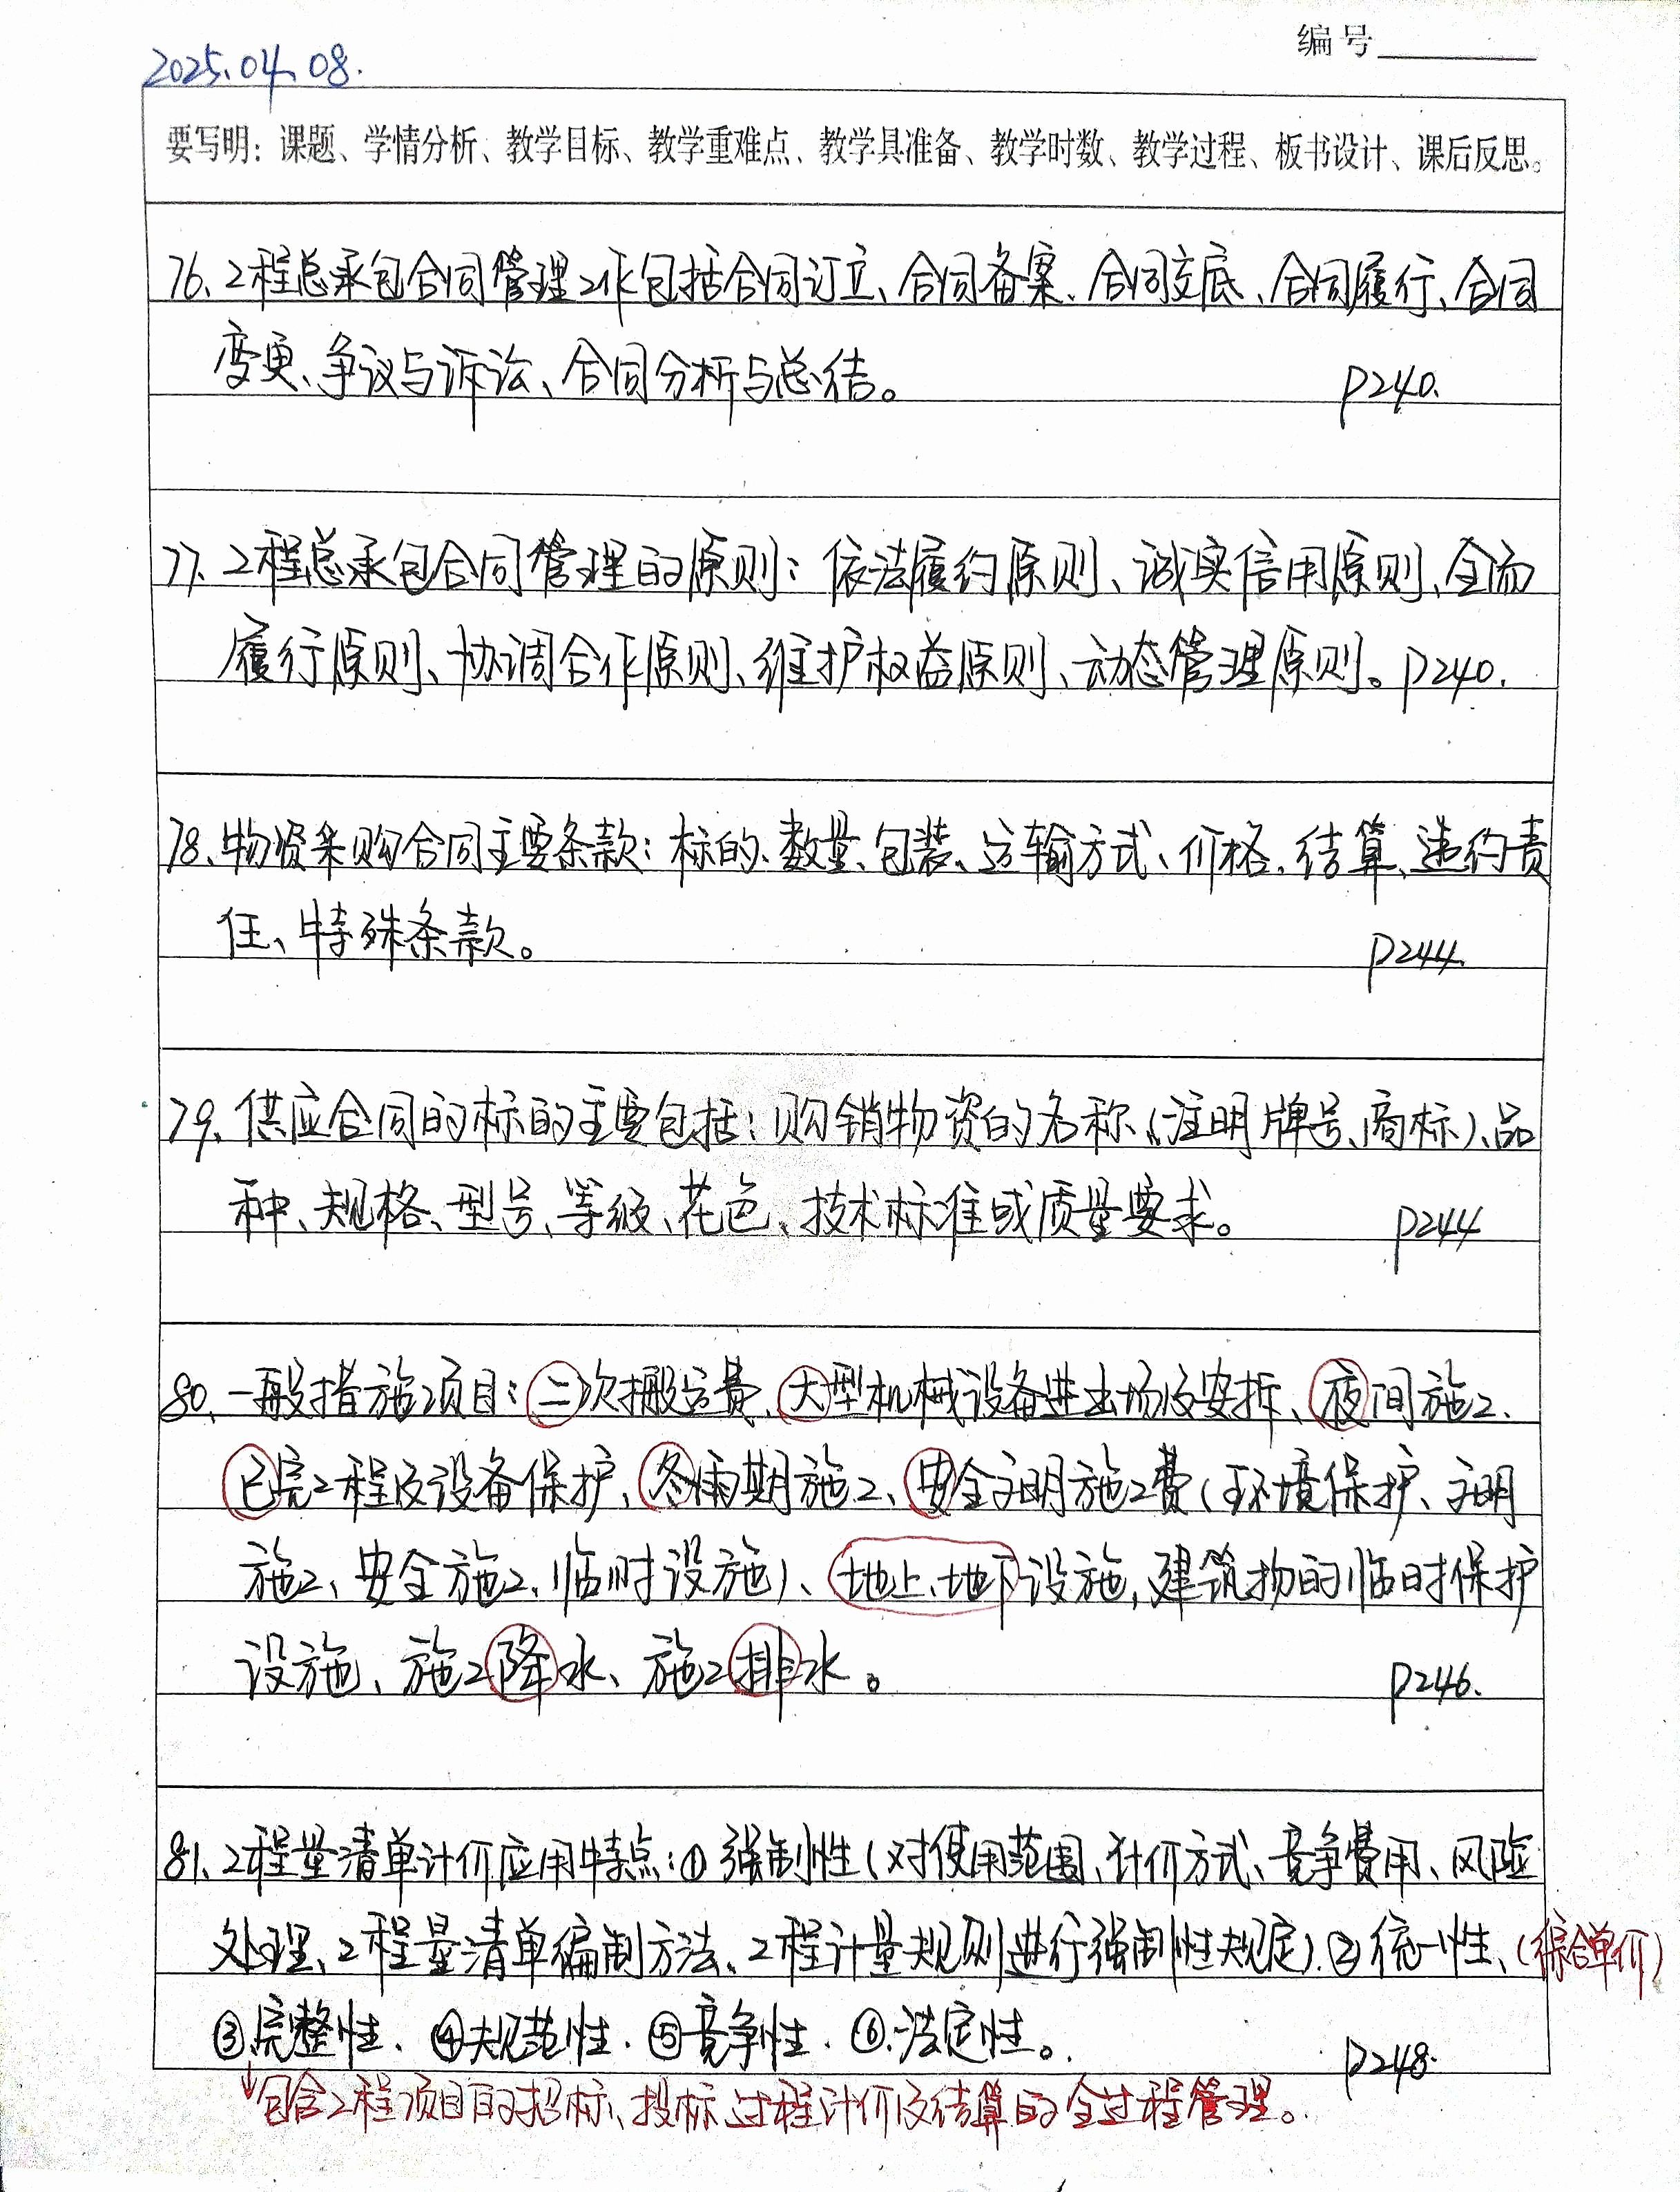 编号
2025.04.08.
要写明：课题、学情分析、教学目标、教学重难点、教学具准备、教学时数、教学过程、板书设计、课后反思。
76、工程总承包合同管理工作包括合同订立、合同备案、合同交底、合同履行、合同
变更、争议与诉讼、合同分析与总结。 P240.
77、工程总承包合同管理的原则：依法履约原则、诚实信用原则、全面
履行原则、协调合作原则、维护权益原则、动态管理原则。P240.
78、物资采购合同主要条款：标的、数量、包装、运输方式、价格、结算、违约责
任、特殊条款。 P244.
79、供应合同的标的主要包括：购销物资的名称（注明牌号、商标）、品
种、规格、型号、等级、花色、技术标准或质量要求。 P244
80、一般措施项目：二次搬运费、大型机械设备进出场及安拆、夜间施工、
已完工程及设备保护、冬雨期施工、安全文明施工费（环境保护、文明
施工、安全施工、临时设施）、地上、地下设施，建筑物的临时保护
设施、施工降水、施工排水。 P246.
81、工程量清单计价应用特点：①强制性（对使用范围、计价方式、竞争费用、风险
处理、工程量清单编制方法、工程计量规则进行强制性规定）、②统一性、（综合单价）
③完整性、④规范性、⑤竞争性、⑥法定性。 P248.
↓包含工程项目的招标、投标、过程计价及结算的全过程管理。